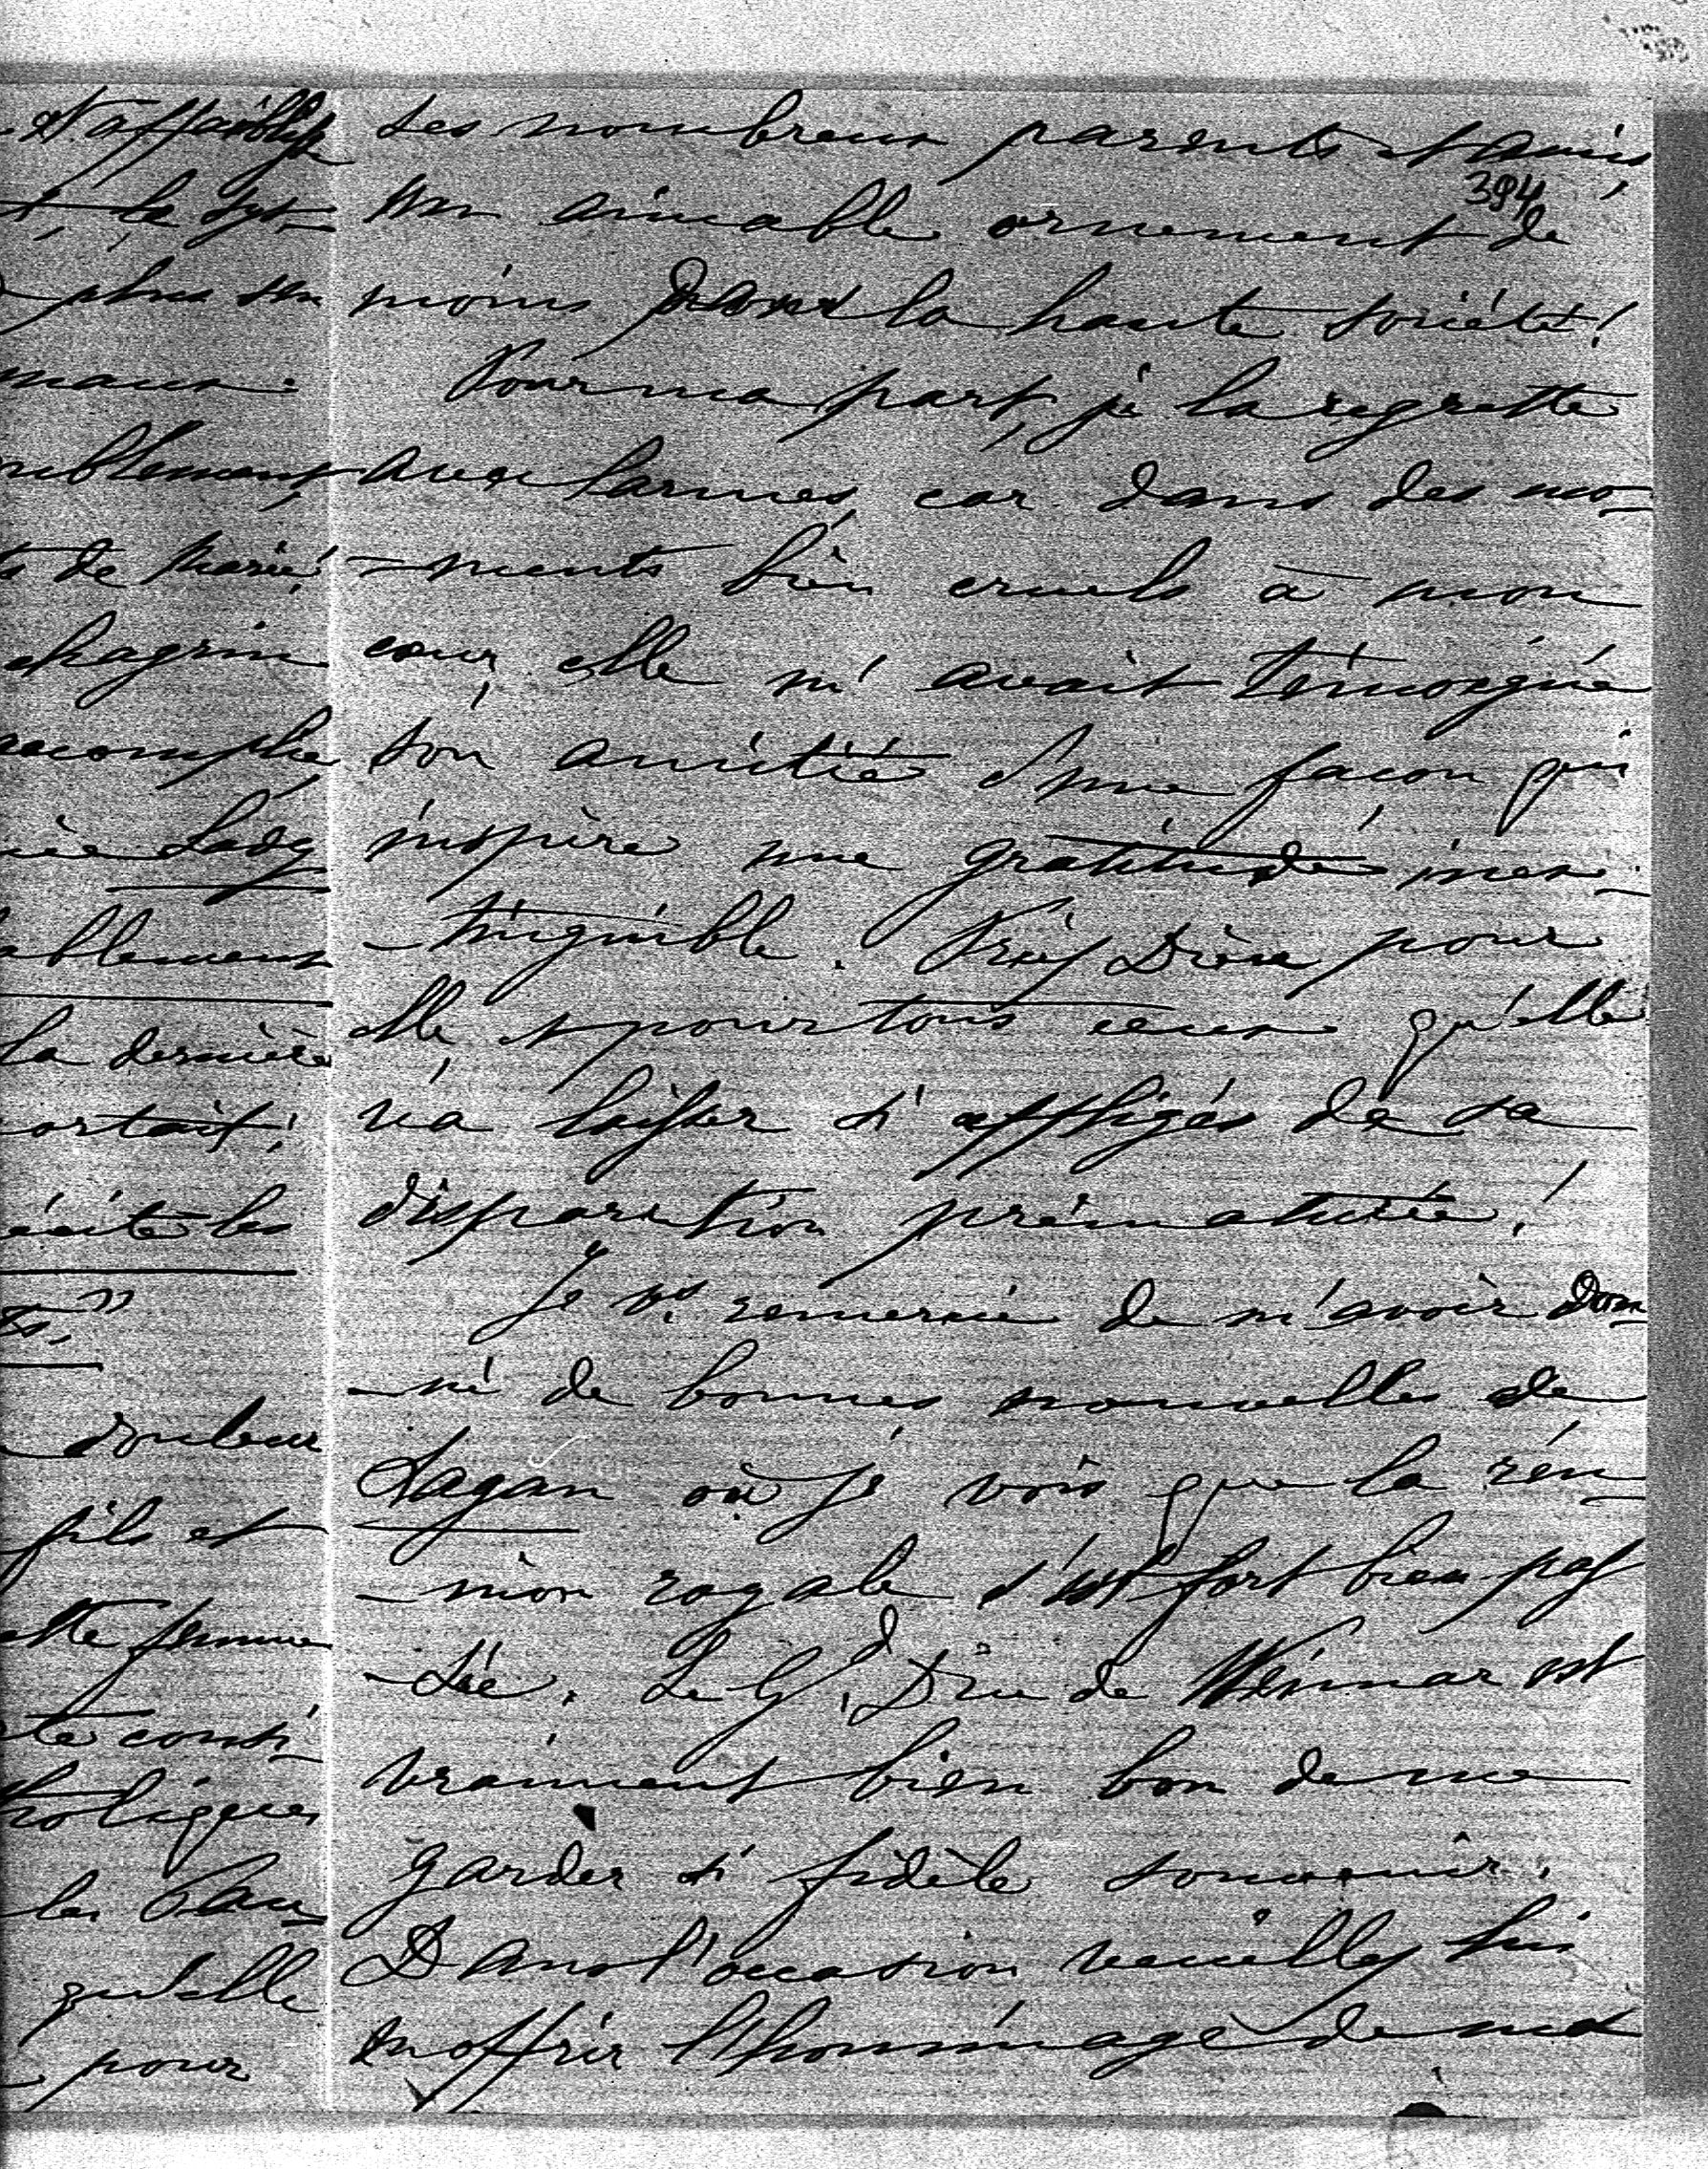 et affaiblit
la sys-
plus un
maux.
-niblement,
de Marie!
chagrin
accomplie
Lady
-ablement
la dernière
-ortait!
écite les
ts."
douleur
fils et
-ette femme
-te consi-
-tholiques
les Pau-
qu'elle
pour
ses nombreux parents et amis,
394
un aimable ornement de
moins dans la haute société!
Pour ma part, je la regrette
avec larmes, car dans des mo-
-ments bien cruels à mon
cœur, elle m'avait témoigné
son amitié d'une façon qui
inspire une gratitude inex-
-tinguible. Priez Dieu pour
elle et pour tous ceux qu'elle
va laisser si affligés de sa
disparition prématurée!
Je vs remercie de m'avoir don-
-né de bonnes nouvelles de
Sagan où je vois que la réu-
-nion royale s'est fort bien pas-
-sée. Le Gd Duc de Weimar est
vraiment bien bon de me
garder si fidèle souvenir.
Dans l'occasion veuillez lui
en offrir l'hommage de ma